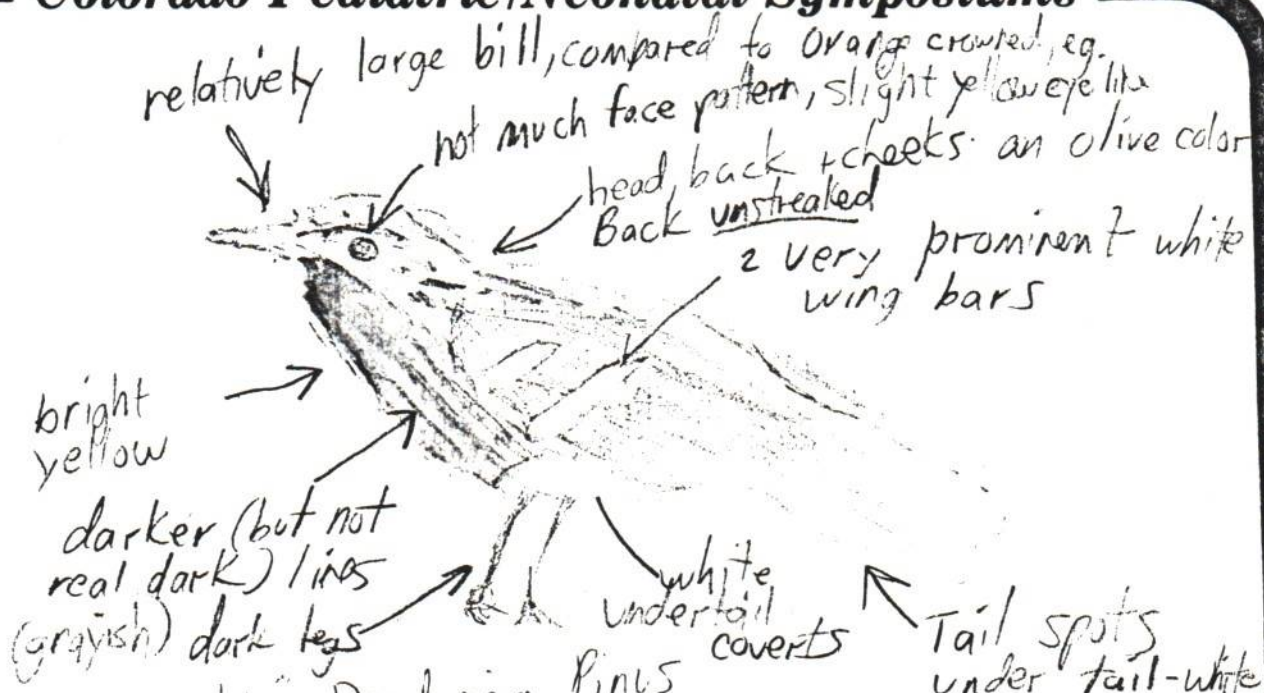 Colorado Pediatric/Neonatal Symposiums
relatively large bill, compared to Orange crowned, eg.
not much face pattern, slight yellow eye
head, back + cheeks an olive color
Back unstreaked
2 very prominent white
wing bars
bright
yellow
darker (but not
real dark) lines
(grayish)
dark legs
white
undertail
coverts
Tail spots
under tail-white
Pinus